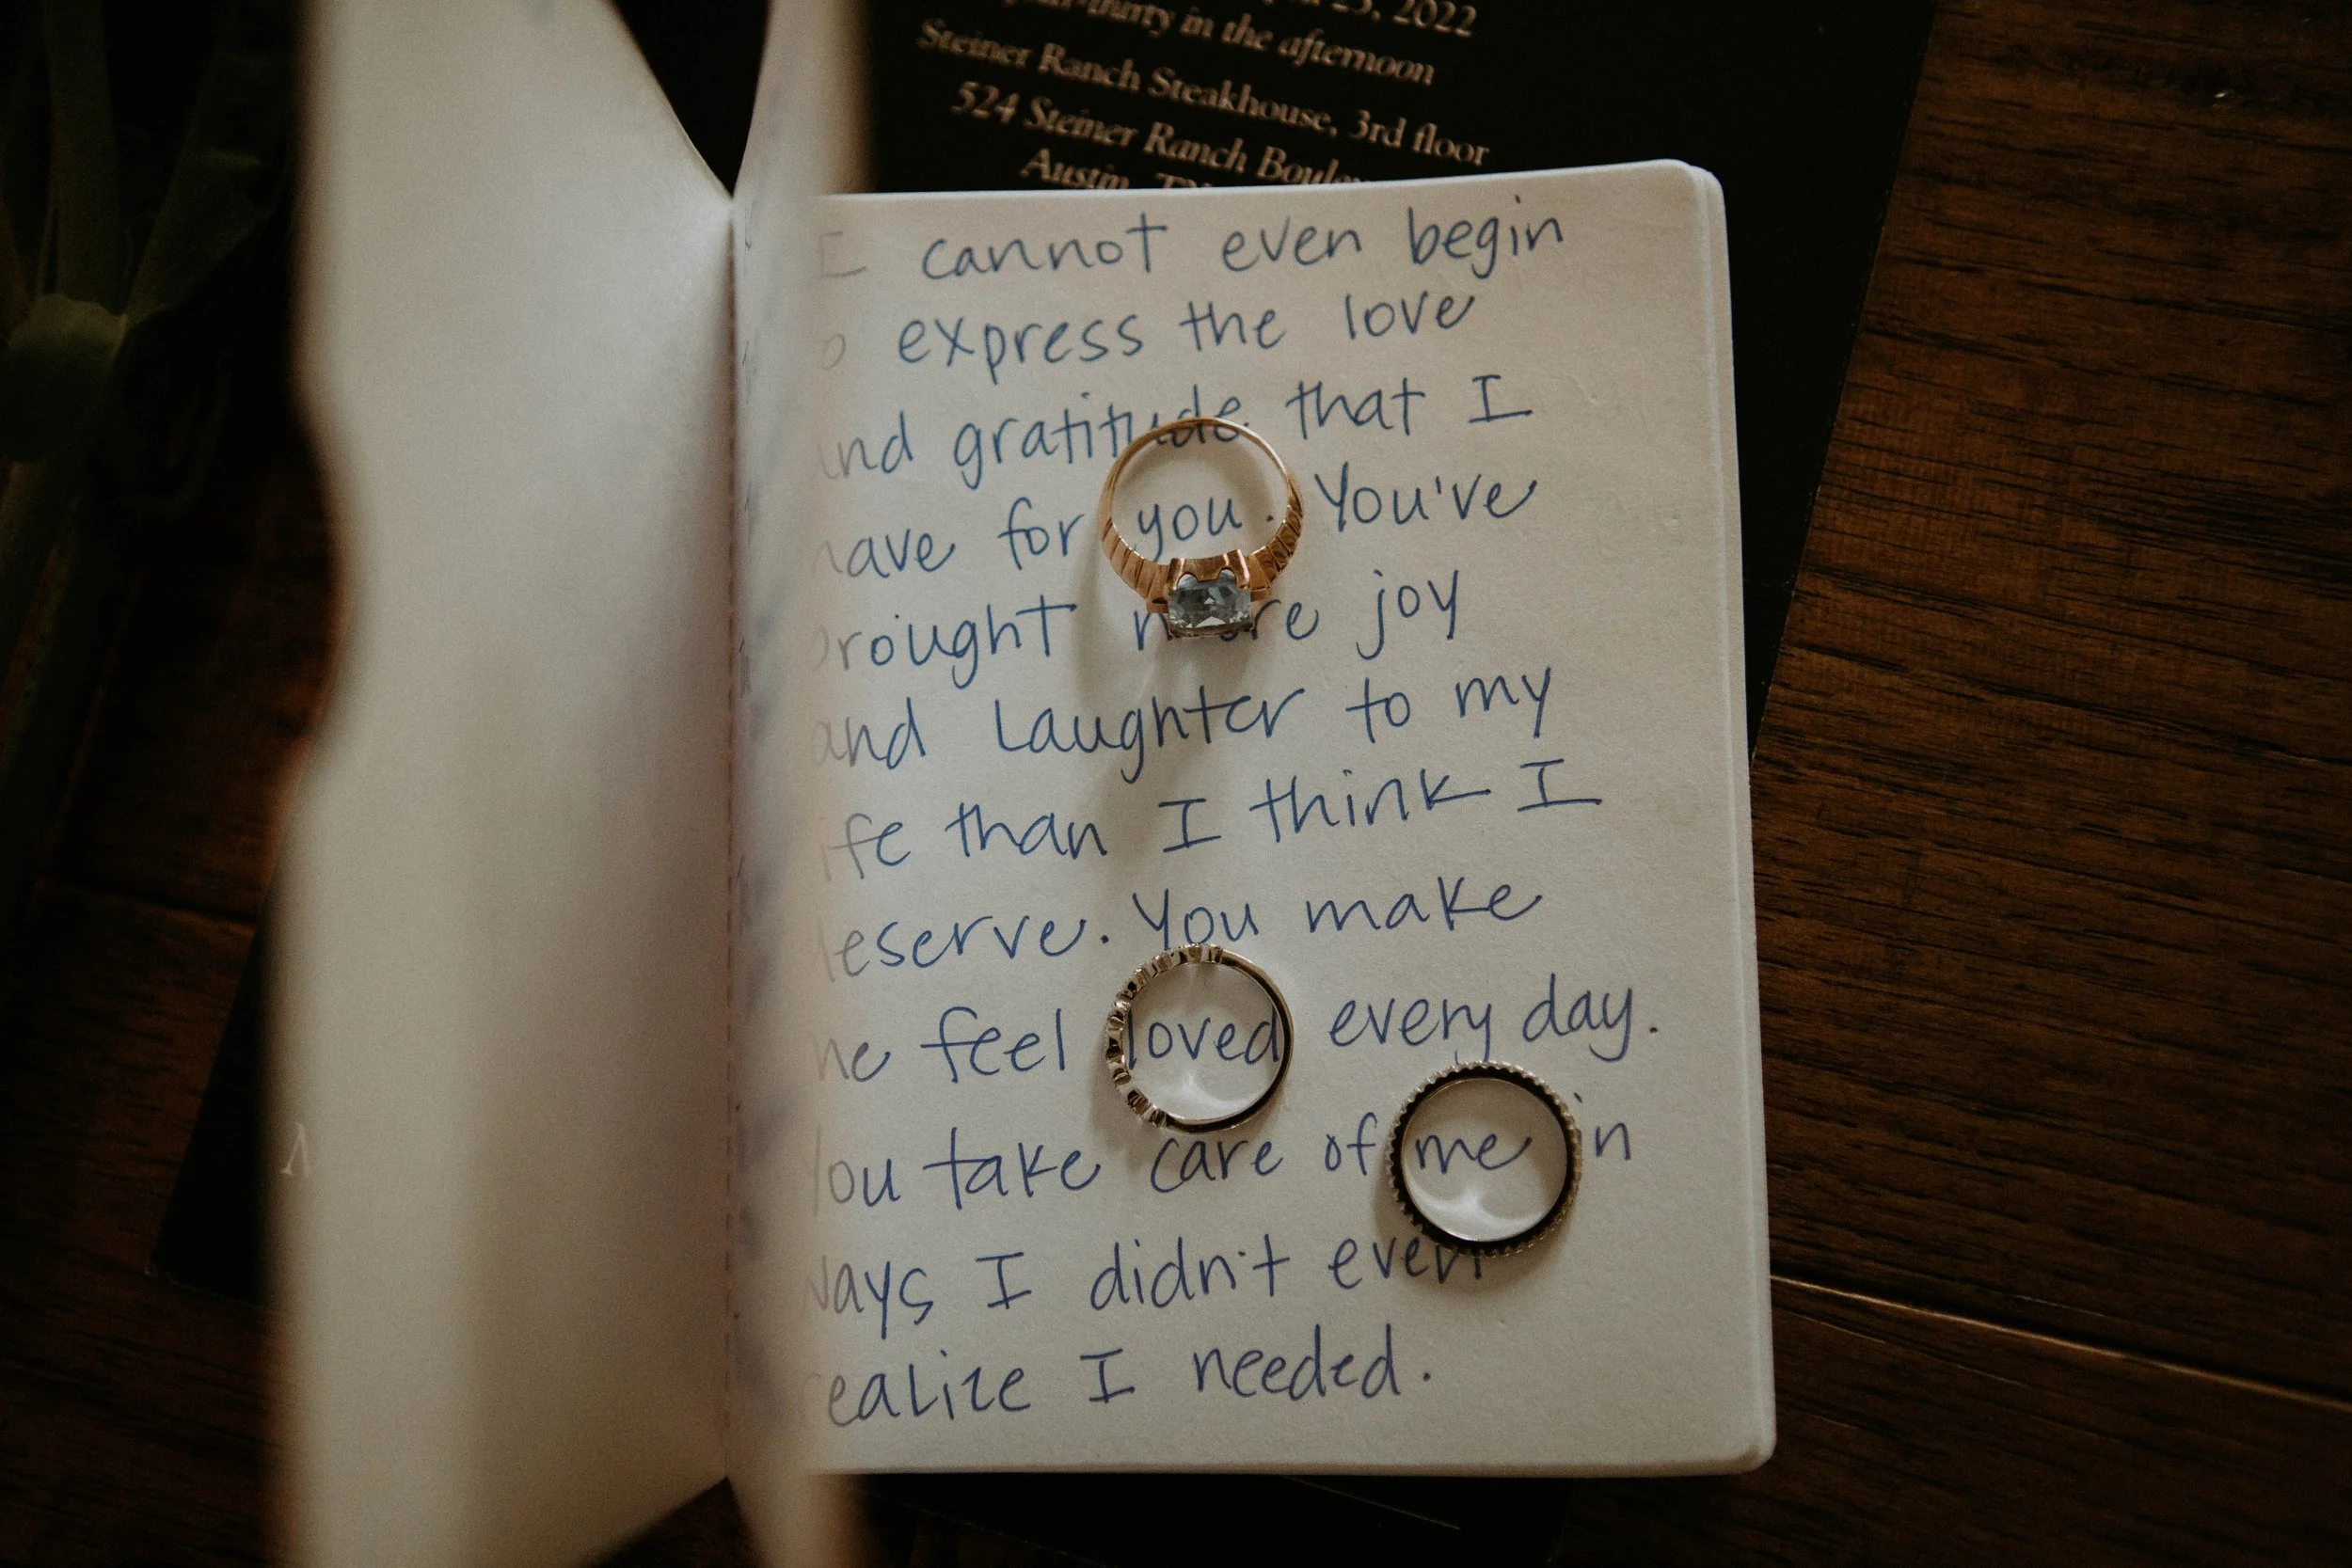 25, 2022
in the afternoon
Steiner Ranch Steakhouse, 3rd floor
524 Steiner Ranch
Austin, TX
I cannot even begin
to express the love
and gratitude that I
have for you. You've
brought more joy
and laughter to my
life than I think I
deserve. You make
me feel loved every day.
You take care of me in
ways I didn't even
realize I needed.